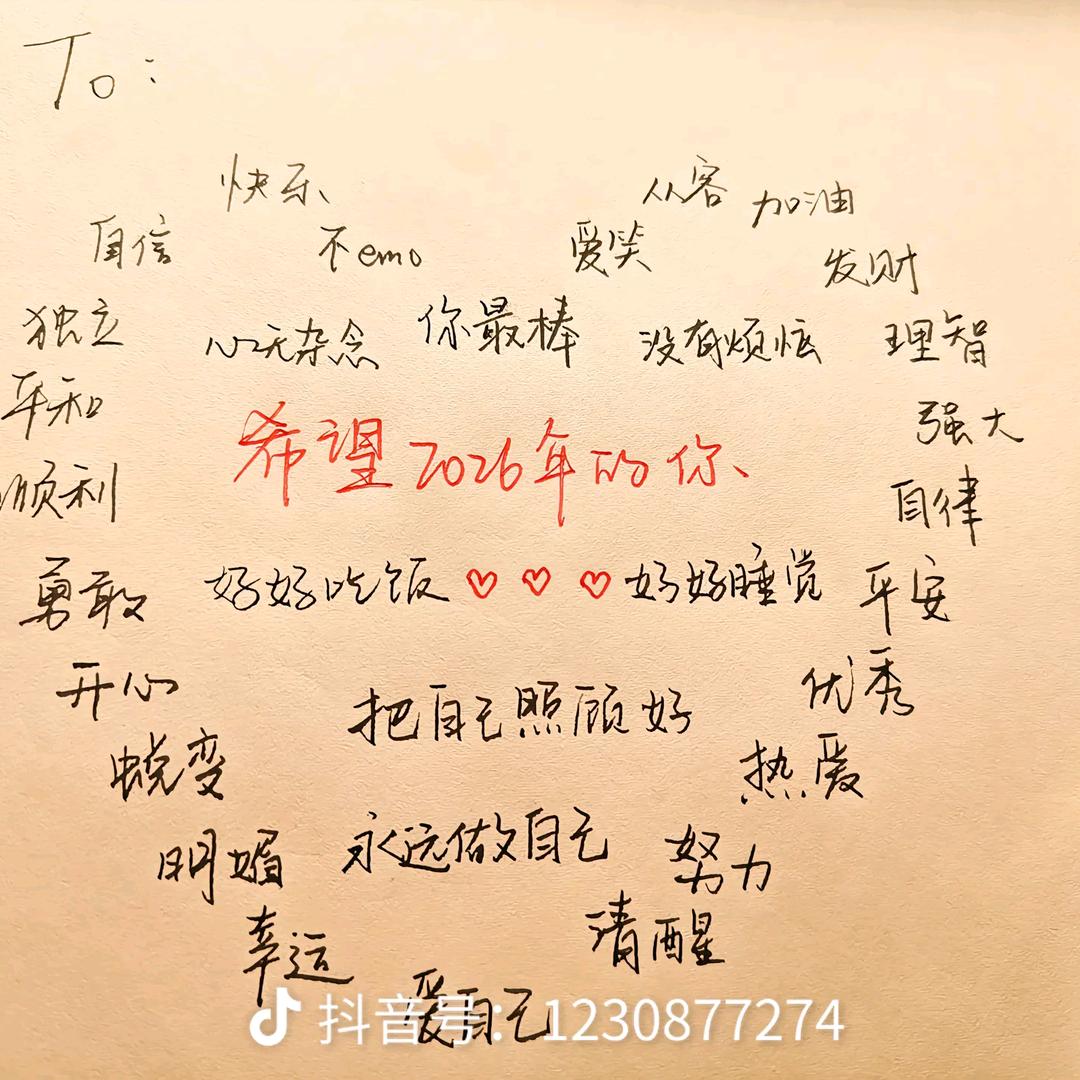 To:
快乐 从容 加油
自信 不emo 爱笑 发财
独立 心无杂念 你最棒 没有烦恼 理智
平和 强大
希望2026年的你、
顺利 自律
勇敢 好好吃饭♡♡♡好好睡觉 平安
开心 把自己照顾好 优秀
蜕变 热爱
明媚 永远做自己 努力
幸运 清醒
爱自己
抖音号: 1230877274